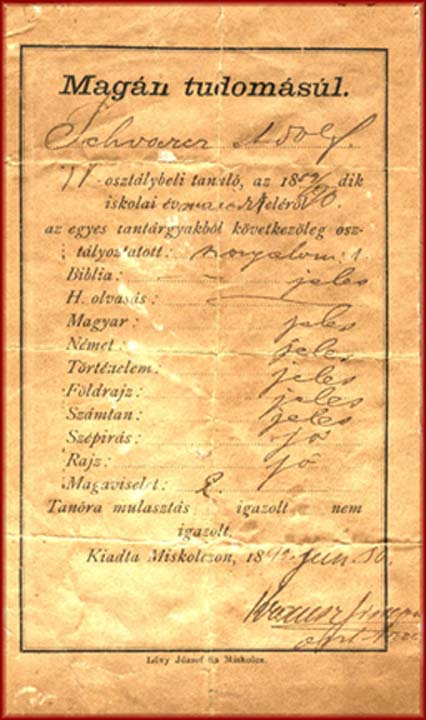 Magán tudomásúl.
Schvarcz Adolf.
-osztálybeli tanuló, az 1889/90 dik
iskolai év feléről
az egyes tantárgyakból következőleg osz-
tályoztatott: szorgalom: 1.
Biblia: jeles
H. olvasás:
Magyar: jeles
Német: jeles
Történelem: jeles
Földrajz: jeles
Számtan: jeles
Szépirás: jó
Rajz: jó
Magaviselet: 2.
Tanóra mulasztás igazolt nem
igazolt.
Kiadta Miskolczon, 18 jun. 30.
Krausz
Lővy József fia Miskolcz.